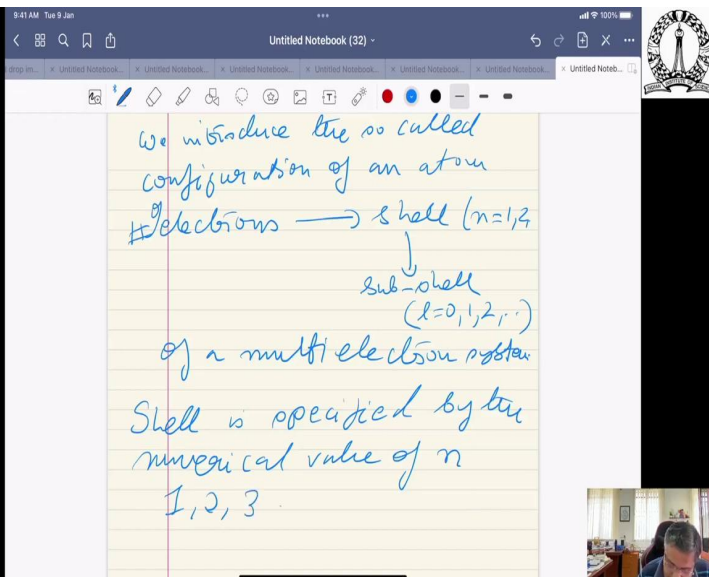 9:41 AM Tue 9 Jan
100%
Untitled Notebook (32)
drop in... × Untitled Notebook... × Untitled Notebook... × Untitled Notebook... × Untitled Notebook... × Untitled Notebook... × Untitled Notebook... × Untitled Noteb...
We introduce the so called
configuration of an atom
# of electrons → shell (n=1,2
sub-shell
(l=0,1,2,..)
of a multielectron system
Shell is specified by the
numerical value of n
1, 2, 3